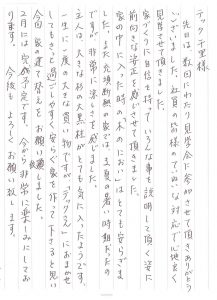 テック千里様
先日は、数回にわたり見学会に参加させて頂きありがとう
ございました。社員の皆様のていねいな対応で心地良く
見学させて頂きました。
家づくりに自信を持って、いろんな事を説明して頂く姿に
前向きな姿正を感じさせて頂きました。
家の中に入った時の木のにおいはとても安らぎま
した。また充填断熱の家は、真夏の暑い時期だったの
ですが、非常に涼しさを感じました。
主人は、大きな杉の大黒柱がとても気に入ったようです。
一生に一度の大きな買い物ですが「テックさん」におまかせ
してもきっと過ごしやすく安らぐ家を作って下さると思い
今回家の建て替えをお願い致しました。
2月には完成予定です。今から非常に楽しみにしてお
ります。今後もよろしくお願い致します。